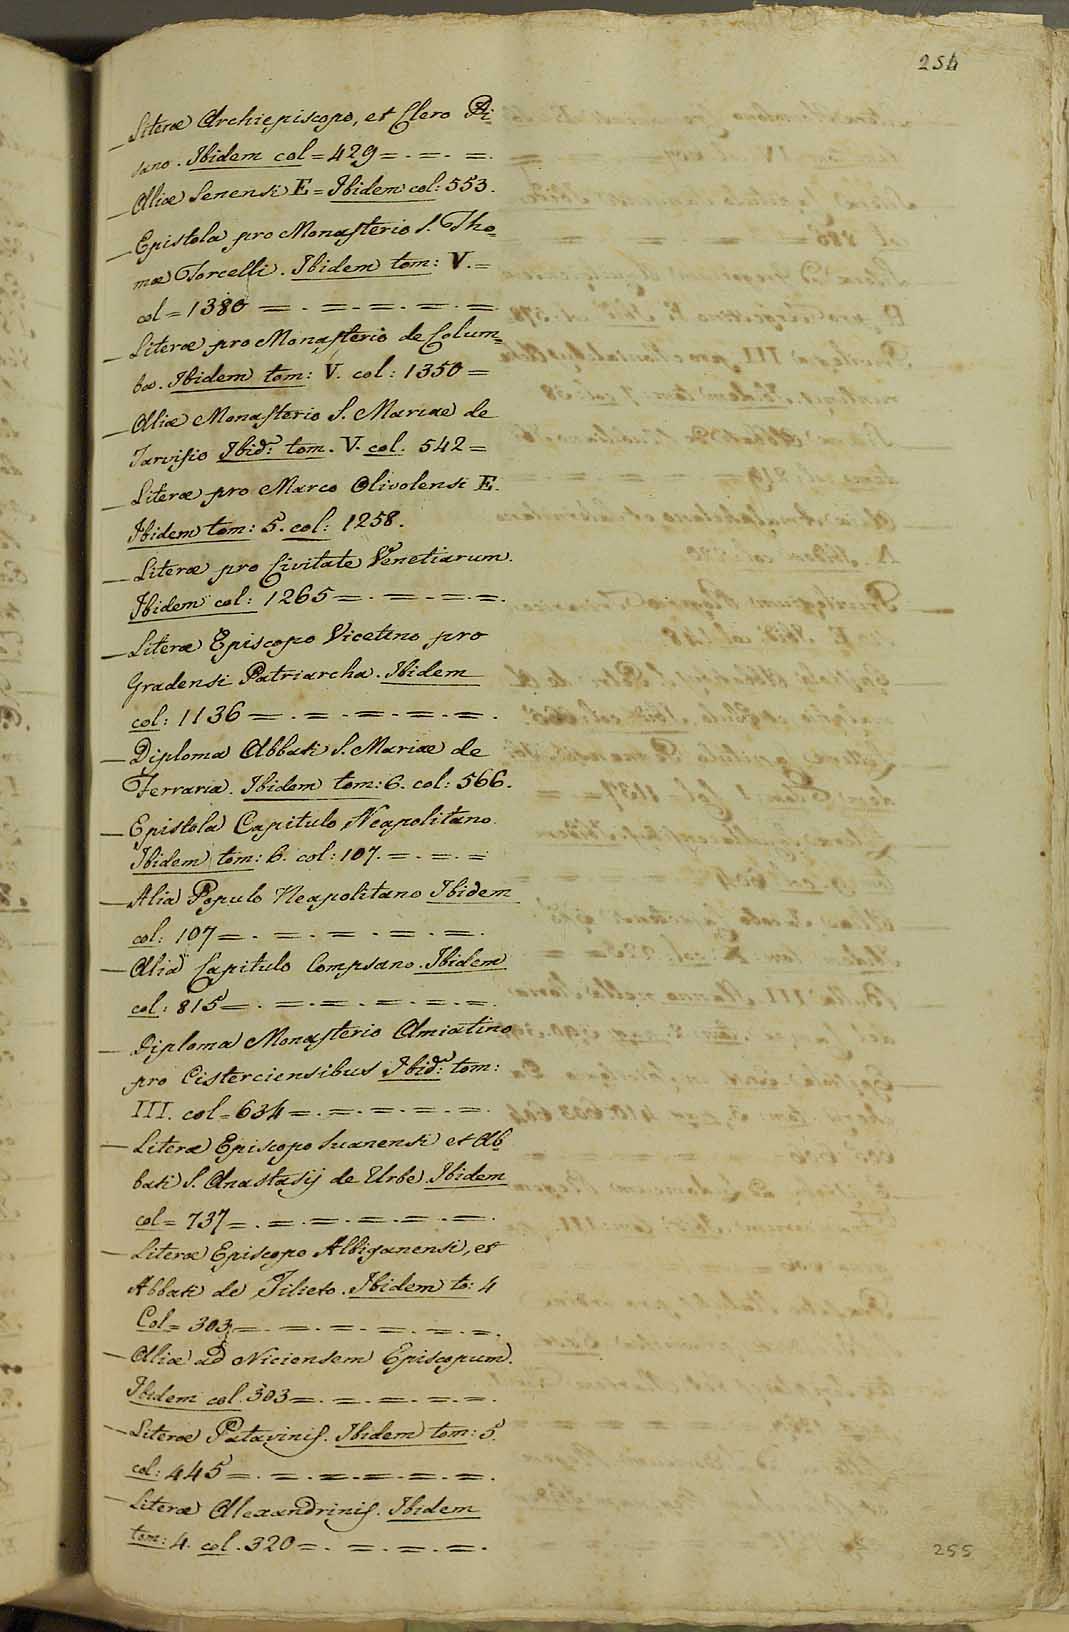 254
_Literæ Archiepiscopo, et Clero Pi-
sano. Ibidem col = 429 = . = . =.
_Aliæ Senensi E = Ibidem col: 553.
_Epistola pro Monasterio S. Tho-
mæ Torcelli. Ibidem tom: V. =
col = 1380 = . = . = . = . =
_Literæ pro Monasterio de Colum-
ba. Ibidem tom: V. col: 1350 =
_Aliæ Monasterio S. Mariae de
Tarvisio Ibid: tom. V. col. 542 =
_Literæ pro Marco Olivolensi E.
Ibidem tom: 5. col: 1258.
_Literæ pro Civitate Venetiarum.
Ibidem col: 1265 = . = . = . =.
_Literæ Episcopo Vicetino pro
Gradensi Patriarcha. Ibidem
col: 1136 = . = . = . = . = .
_Diploma Abbati S. Mariae de
Ferraria. Ibidem tom: 6. col: 566.
_Epistola Capitulo Neapolitano.
Ibidem tom: 6. col: 107. = . = . =
_Alia Populo Neapolitano Ibidem
col: 107 = . = . = . = . = .
_Alia Capitulo Compsano. Ibidem
col: 815 = . = . = . = . = .
_Diploma Monasterio Amiatino
pro Cisterciensibus Ibid: tom:
III. col = 634 = . = . = . = . = .
_Literæ Episcopo Suanensi et Ab-
bati S. Anastasij de Urbe. Ibidem
col = 737 = . = . = . = . = . = .
_Literæ Episcopo Albiganensi, et
Abbati de Tilieto. Ibidem to: 4
Col = 303 = . = . = . = . = .
_Aliæ ad Niciensem Episcopum.
Ibidem col. 303 = . = . = . = . = .
_Literæ Patavinis. Ibidem tom: 5.
col: 445 = . = . = . = . = . = .
_Literæ Alexandrinis. Ibidem
tom: 4. col. 320 = . = . = . = .
255